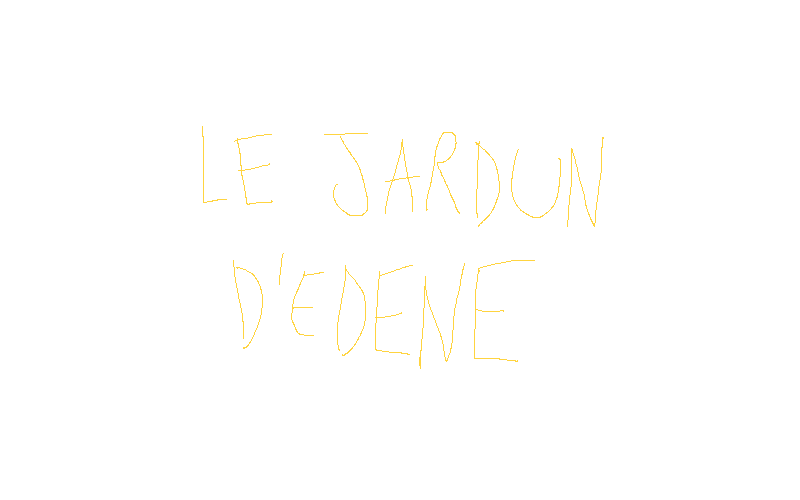 LE JARDUN
D'EDENE